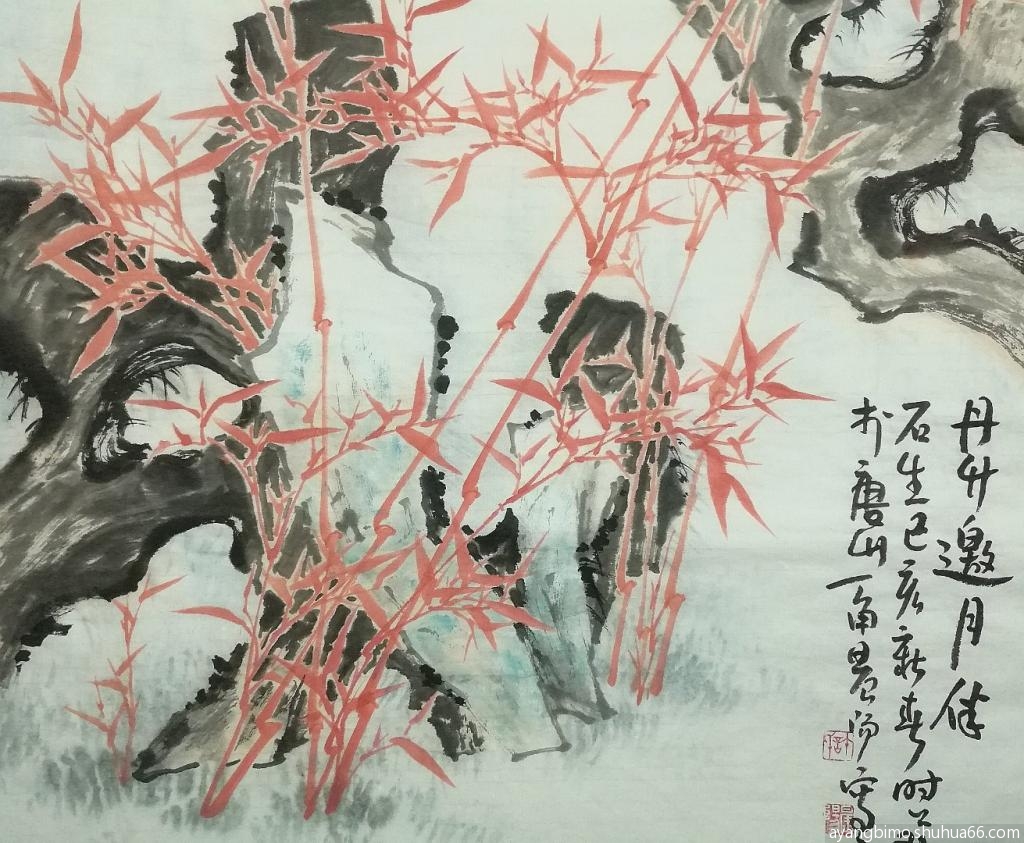 丹竹邀月伴
石生己亥新春时
于唐山一角晨
ayangbimo.shuhua66.com